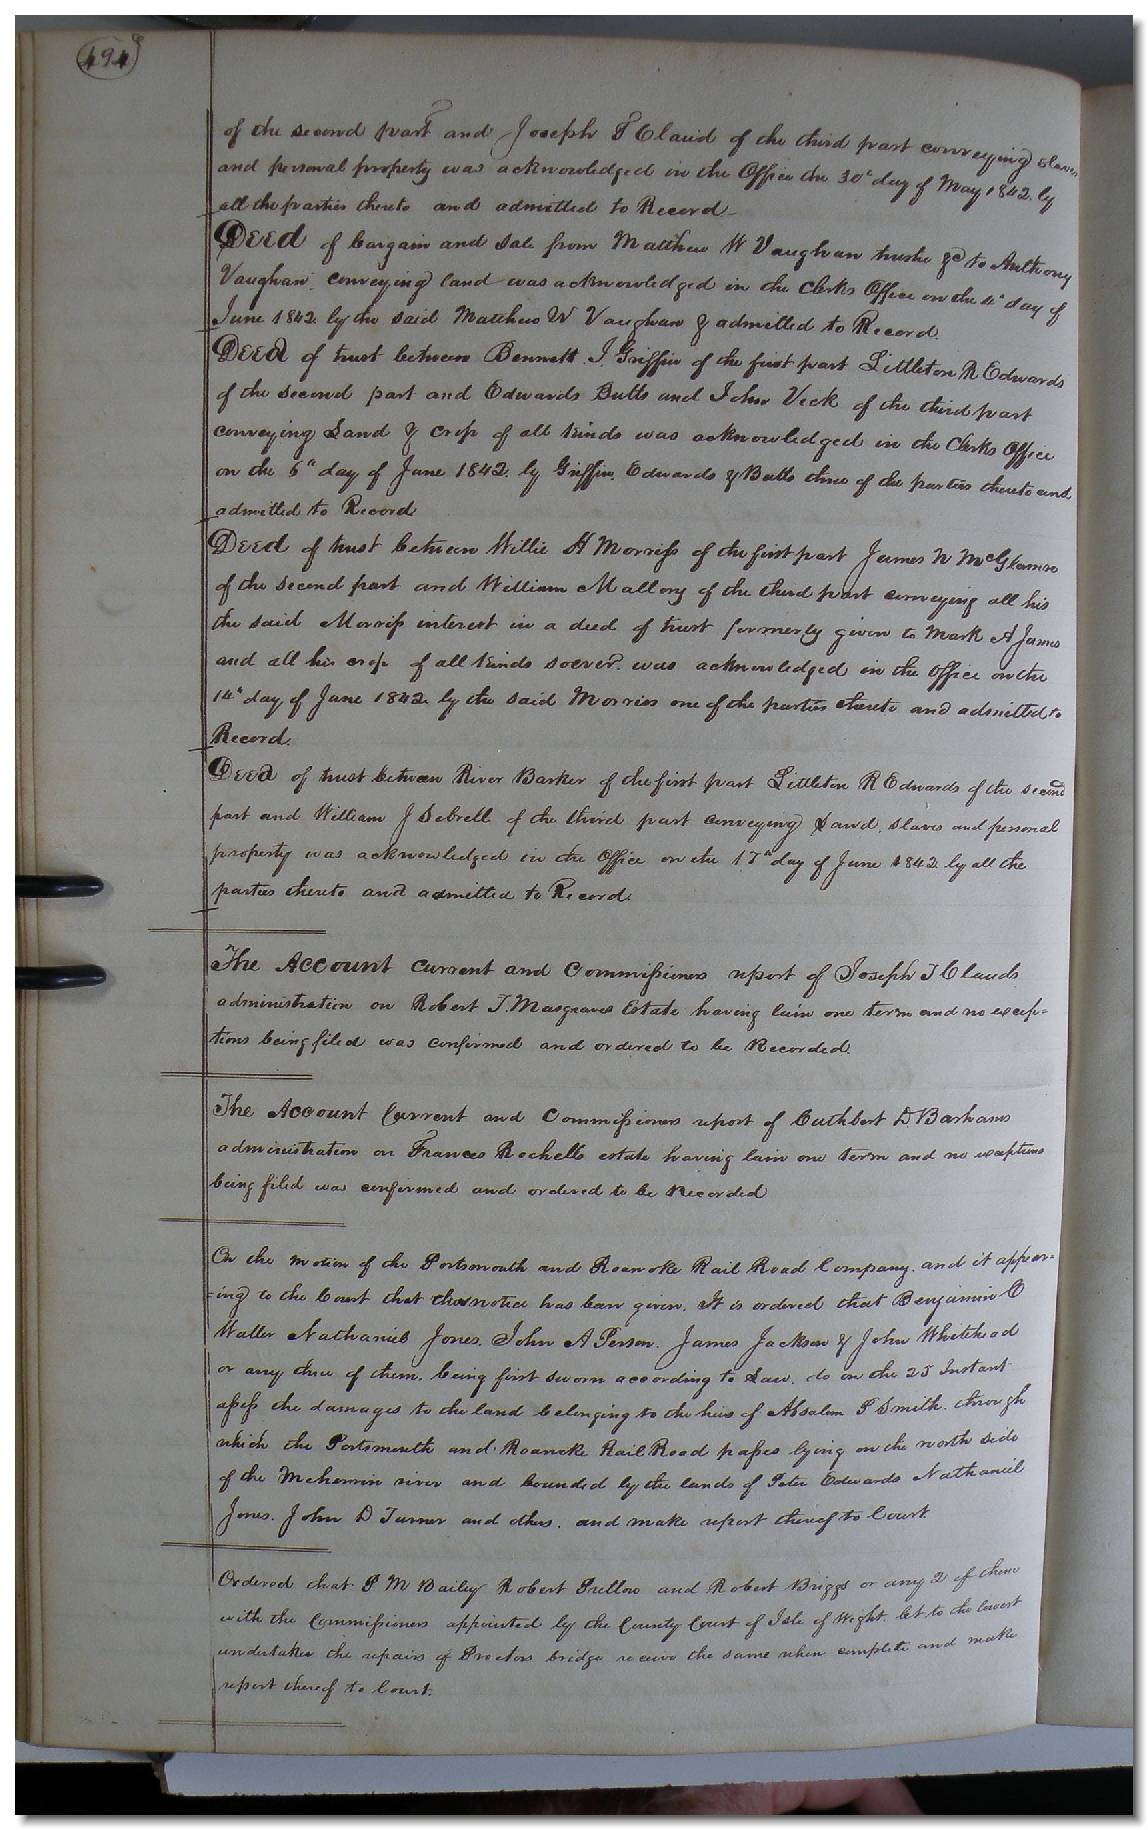 494
of the second part and Joseph T Claud of the third part conveying slaves
and personal property was acknowledged in the Office the 30th day of May 1842. by
all the parties thereto and admitted to Record
Deed of bargain and sale from Matthew W Vaughan trustee &c to Anthony
Vaughan. conveying land was acknowledged in the Clerks Office on the 4th day of
June 1842. by the said Matthew W Vaughan & admitted to Record.
Deed of trust between Bennett J. Griffin of the first part Littleton R Edwards
of the second part and Edwards Butts and John Vick of the third part
conveying Land & Crop of all kinds was acknowledged in the Clerks Office
on the 6th day of June 1842. by Griffin, Edwards & Butts three of the parties thereto and
admitted to Record
Deed of trust between Willie H Morriss of the first part James W McGlamre
of the second part and William Mallory of the third part conveying all his
the said Morriss interest in a deed of trust formerly given to Mark A James
and all his crop of all kinds soever. was acknowledged in the Office on the
14th day of June 1842. by the said Morriss one of the parties thereto and admitted to
Record.
Deed of trust between River Barker of the first part Littleton R Edwards of the second
part and William J Sebrell of the third part conveying Land, slaves and personal
property was acknowledged in the Office on the 17th day of June 1842. by all the
parties thereto and admitted to Record.
The Account Current and Commissioners report of Joseph T Clauds
administration on Robert T. Masgraves Estate having lain one term and no excep=
tions being filed was confirmed and ordered to be Recorded.
The Account Current and Commissioners report of Cuthbert D Barhams
administration on Frances Rochells estate having lain one term and no exceptions
being filed was confirmed and ordered to be Recorded
On the motion of the Portsmouth and Roanoke Rail Road Company. and it appear=
=ing to the Court that the notice has been given. It is ordered that Benjamin C
Waller Nathaniel Jones. John A Person. James Jackson & John Whitehead
or any three of them. being first sworn according to Law. do on the 25 Instant
assess the damages to the land belonging to the heirs of Absalom P Smith. through
which the Portsmouth and Roanoke Rail Road passes lying on the north side
of the Meherrin river and bounded by the lands of Peter Edwards Nathaniel
Jones. John D Turner and others. and make report thereof to Court.
Ordered that P M Bailey Robert Pretlow and Robert Briggs or any 2 of them
with the Commissioners appointed by the County Court of Isle of Wight. let to the lowest
undertaker the repairs of Proctors bridge receive the same when complete and make
report thereof to Court.